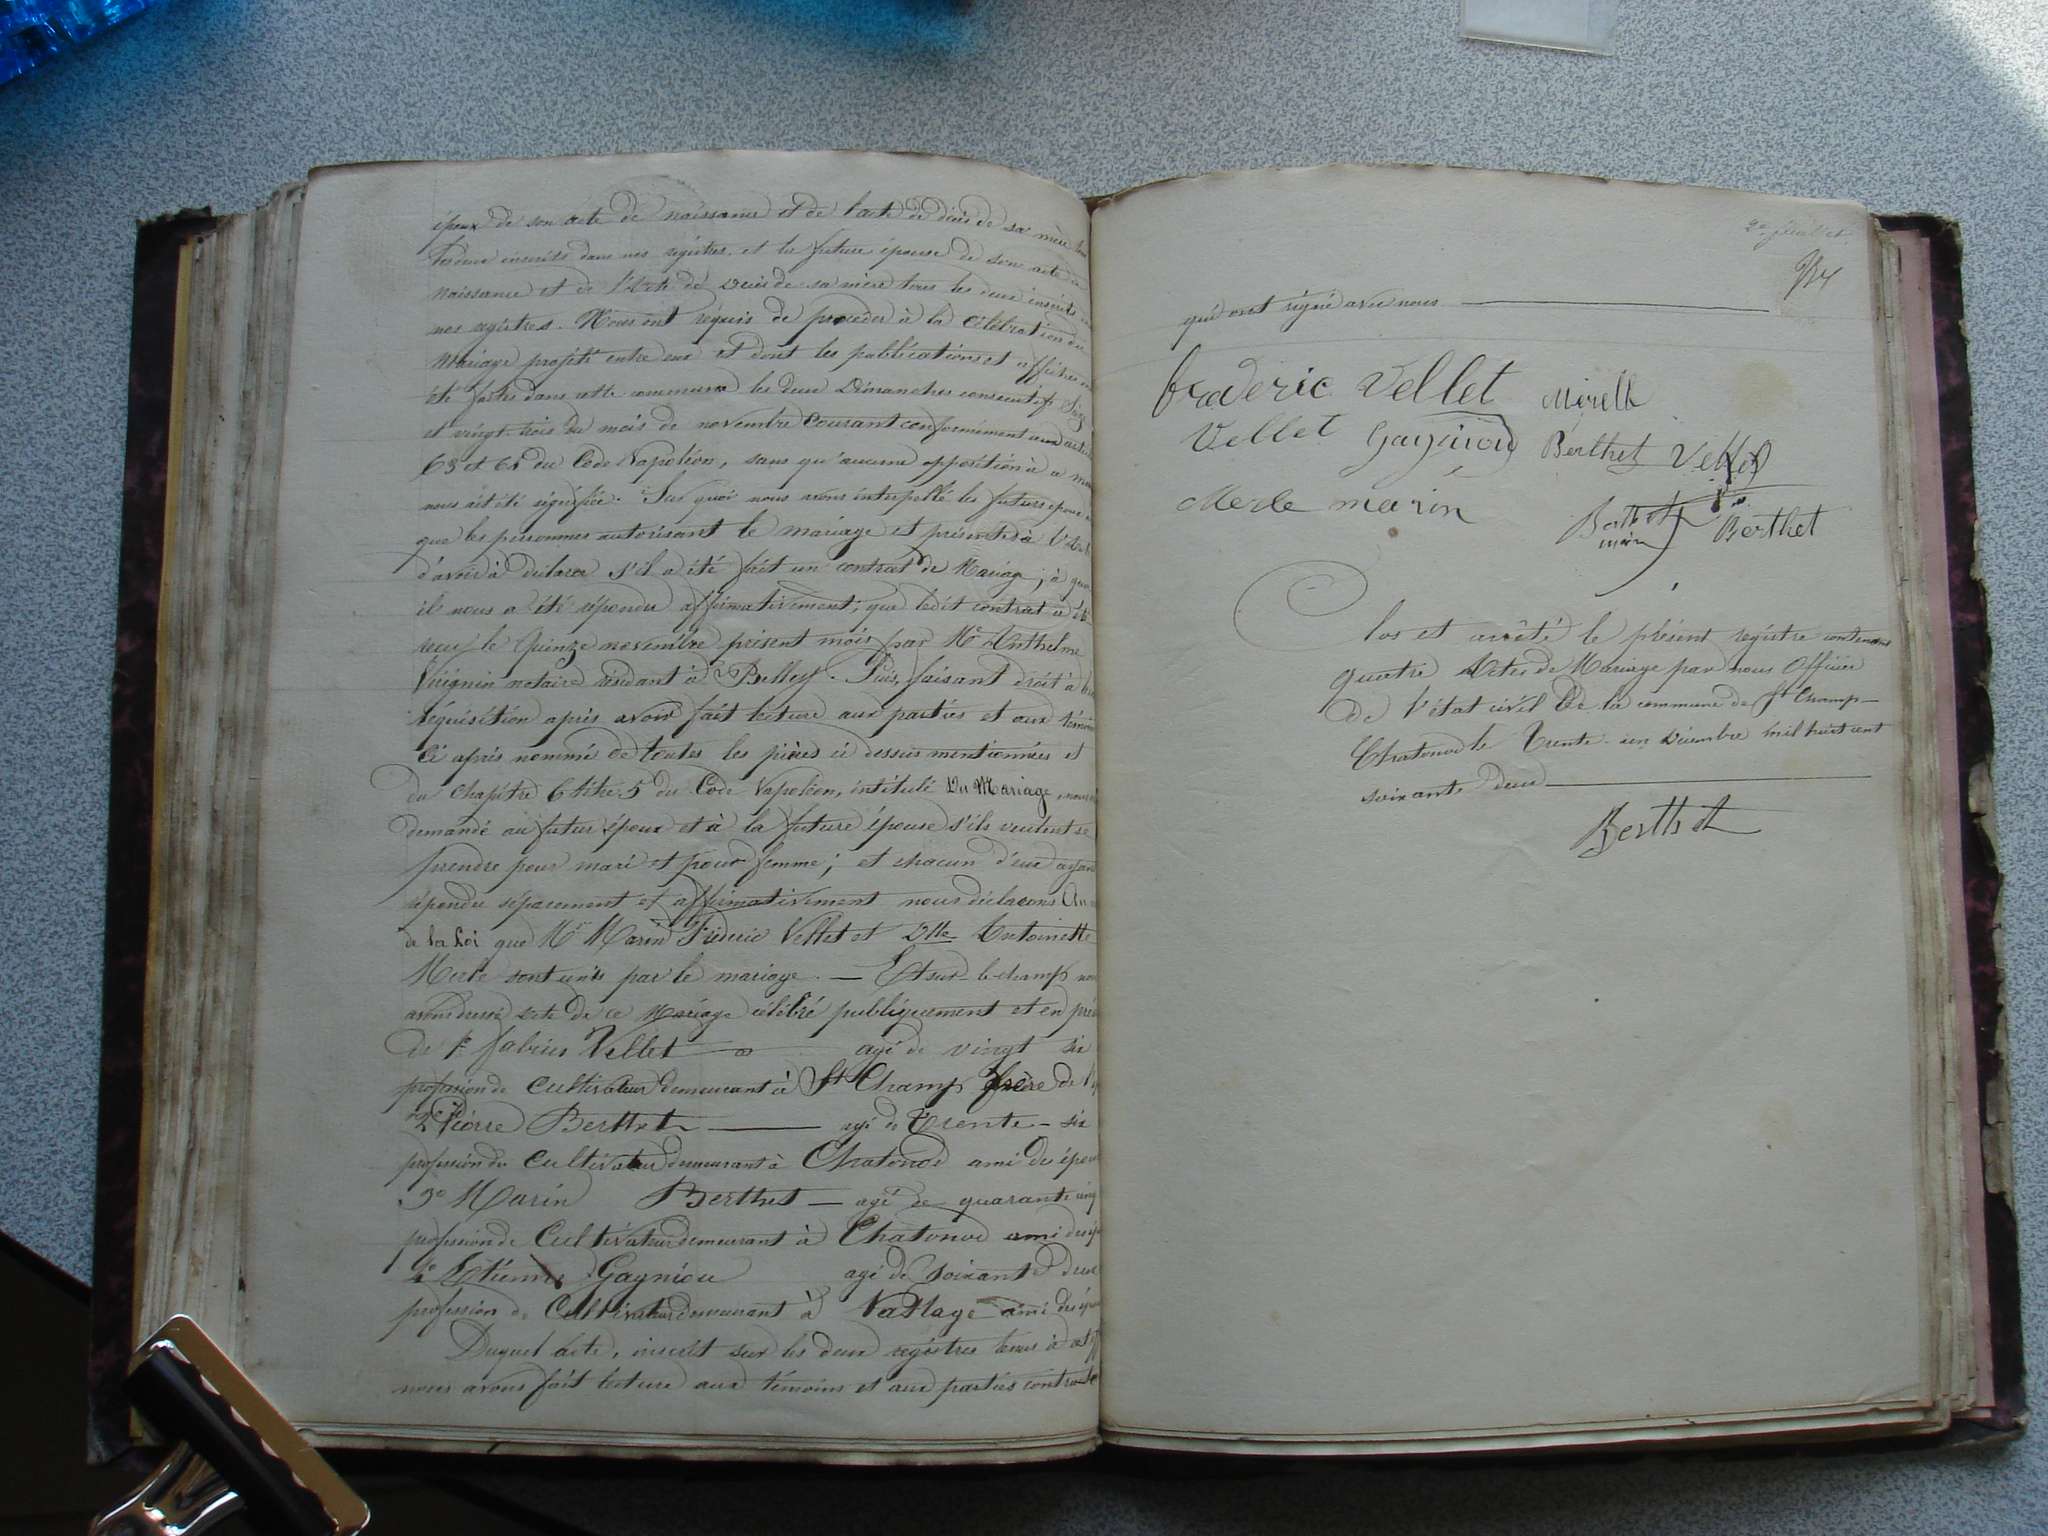 époux de son acte de naissance et de l'acte de décès de sa mère tous
les deux inscrits dans nos registres, et la future épouse de son acte de
naissance et de l'acte de décès de sa mère tous les deux inscrits
nos registres. Nous ont requis de procéder à la célébration du
Mariage projeté entre eux et dont les publications et affiches
été faites dans cette commune les deux Dimanches consécutifs Seize
et vingt-trois du mois de novembre courant conformément aux articles
63 et 64 du Code Napoléon, sans qu'aucune opposition à ce
nous ait été signifiée. Sur quoi nous avons interpellé les futurs époux
que les personnes autorisant le mariage et présentes à l'Acte
d'avoir à déclarer s'il a été fait un contrat de Mariage; à quoi
il nous a été répondu affirmativement; que ledit contrat a été
reçu le Quinze novembre présent mois par Me Anthelme
notaire résidant à Belley. Puis, faisant droit à
réquisition après avoir fait lecture aux parties et aux témoins
ci après nommé de toutes les pièces ci dessus mentionnées et
du chapitre 6 titre 5 du Code Napoléon, intitulé Du Mariage,
demandé au futur époux et à la future épouse s'ils veulent se
prendre pour mari et pour femme; et chacun d'eux ayant
répondu séparément et affirmativement nous déclarons Au
de la Loi que Mr Marin Fréderic Vellet et Dlle Antoinette
Merle sont unis par le mariage. — Et sur-le-champ
avons dressé acte de ce Mariage célébré publiquement et en
de Vellet agé de vingt six
profession de Cultivateur demeurant à St Champ frère de
2e Pierre Berthet — agé de Trente-six
profession de Cultivateur demeurant à Chatonod ami des époux
3e Marin Berthet — agé de quarante cinq
profession de Cultivateur demeurant à Chatonod ami des
4e Etienne Gagniou agé de Soixante Deux
profession de Cultivateur demeurant à ami des
Duquel acte, inscrit sur les deux registres tenus à cet
nous avons fait lecture aux témoins et aux parties
2e feuillet
qui ont signé avec nous
fraderic Vellet
Vellet Gagniou Berthet Vellet
Merle marin
Berthet Berthet
maire
Clos et arrêté le présent registre contenant
quatre Actes de Mariage par nous Officier
de l'état civil De la commune de St Champ-
Chatonod le Trente-un Décembre mil huit cent
soixante deux
Berthet